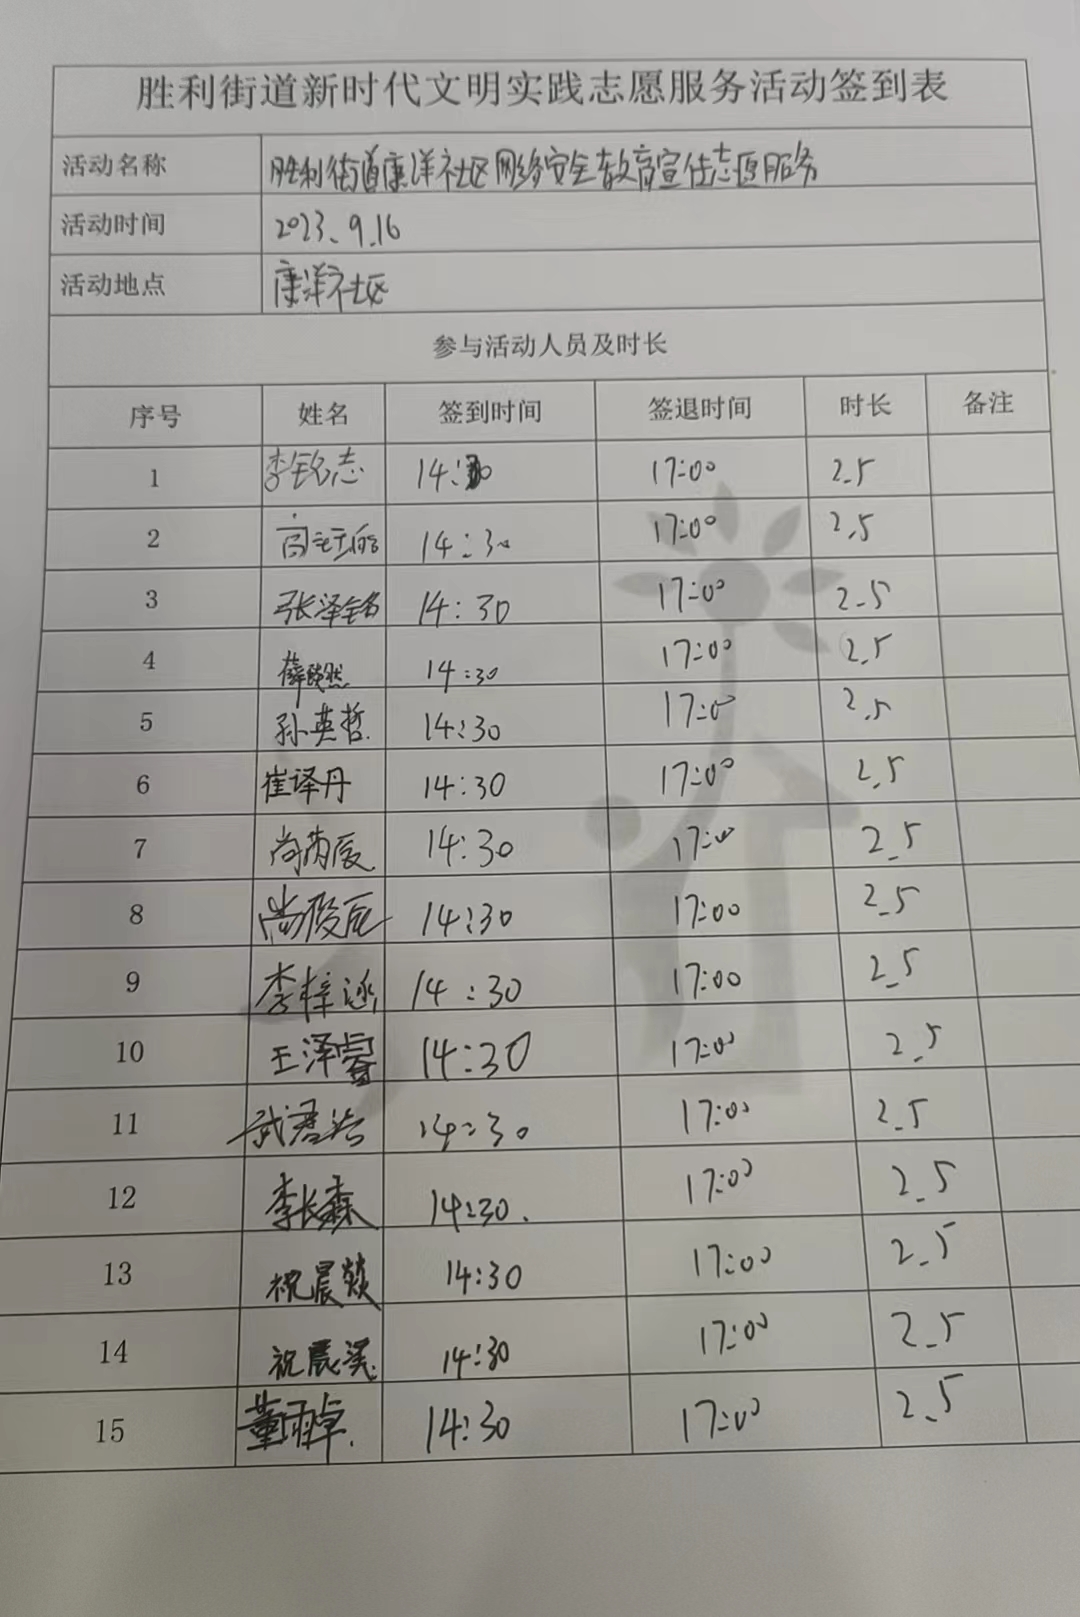 胜利街道新时代文明实践志愿服务活动签到表
活动名称 胜利街道康洋社区网络安全教育宣传志愿服务
活动时间 2023.9.16
活动地点 康洋社区
参与活动人员及时长
序号 姓名 签到时间 签退时间 时长 备注
1 李铭志 14:30 17:00 2.5
2 14:30 17:00 2.5
3 张泽铭 14:30 17:00 2.5
4 薛皓然 14:30 17:00 2.5
5 孙英哲 14:30 17:00 2.5
6 崔译丹 14:30 17:00 2.5
7 尚芮辰 14:30 17:00 2.5
8 尚殷辰 14:30 17:00 2.5
9 李梓涵 14:30 17:00 2.5
10 王泽睿 14:30 17:00 2.5
11 武君浩 14:30 17:00 2.5
12 李长森 14:30 17:00 2.5
13 祝晨燚 14:30 17:00 2.5
14 祝晨溪 14:30 17:00 2.5
15 董雨卓 14:30 17:00 2.5